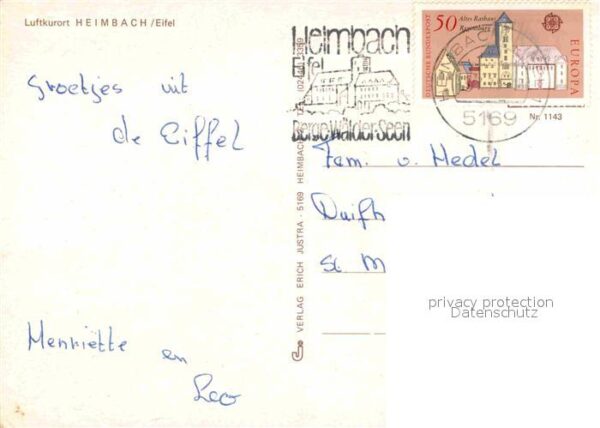 Luftkurort HEIMBACH /Eifel
Groetjes uit
de Eiffel
Henriette en
Leo
VERLAG ERICH JUSTRA - 5169 HEIMBACH
Heimbach
Eifel
Berge Wälder Seen
50
Altes Rathaus
Regensburg
DEUTSCHE BUNDESPOST
EUROPA
HEIMBACH
5169
Nr. 1143
Fam. v. Hedel
Duifh
St M
privacy protection
Datenschutz